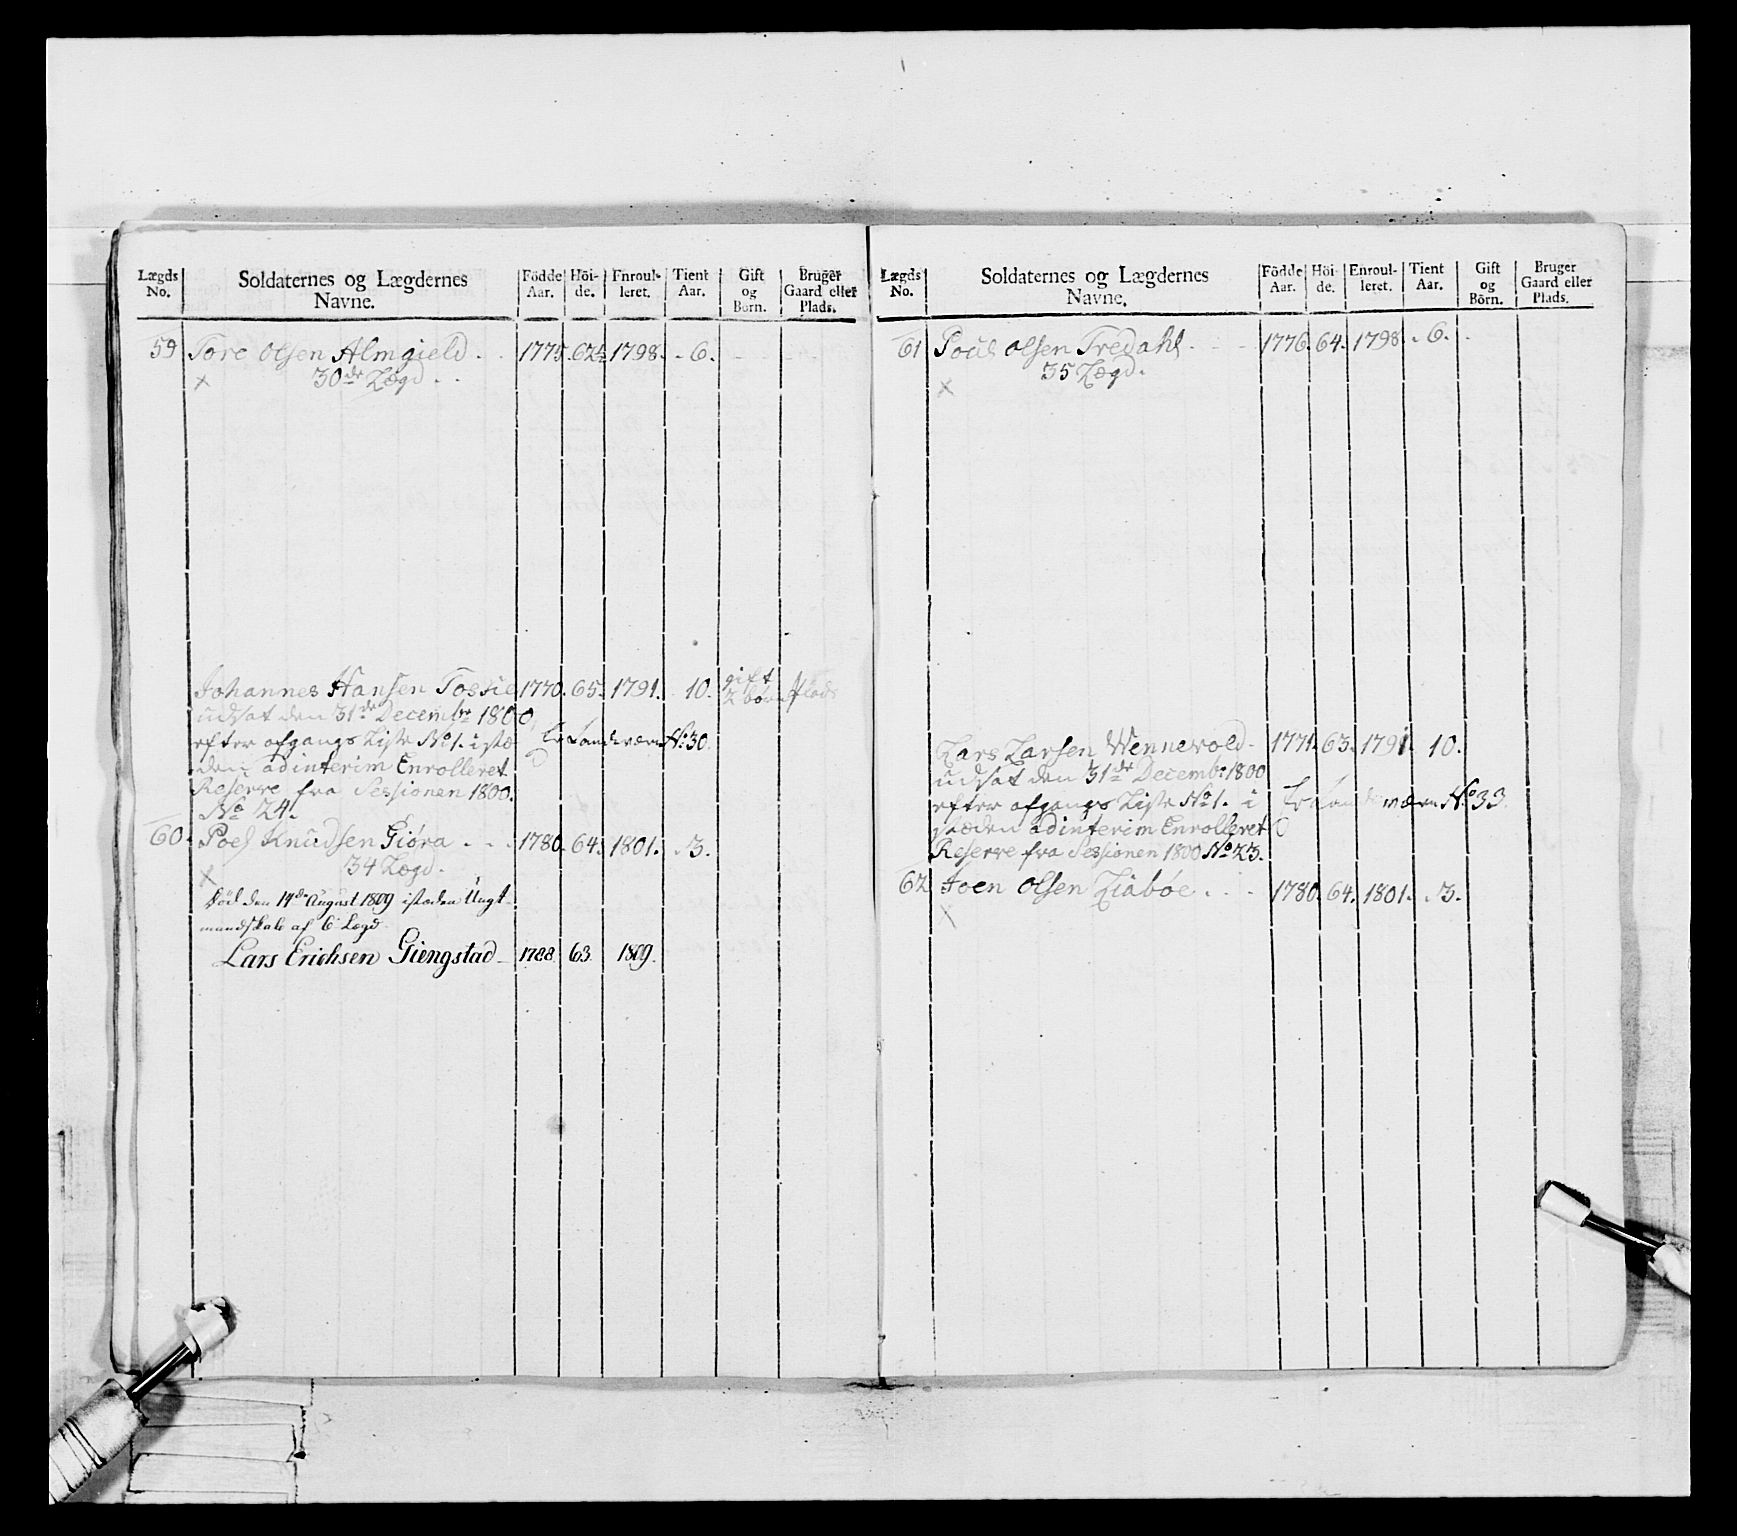 Lægds No. Soldaternes og Lægdernes Navne. Födde Aar. Höi-de. Enroul-leret. Tient Aar. Gift og Börn. Bruger Gaard eller Plads.
59 Tore Olsen Almgield . . 1775. 62½ 1798. - 6.
x 30de Lægd . .
Johannes Hansen 1770. 65. 1791. 10. gift 2 börn Plads
udsat den 31de Decembr 1800
efter afgangs Liste No 1. istæ
den adinterim Enrolleret
Reserve fra Sessionen 1800.
No 24.
Landeværn No 30.
60. Poel Knudsen Giöra . . . 1780. 64. 1801. . 3.
x 34 Lægd.
Död den 14de August 1809 isteden Ungt-
mandskab af 6 Lægd
Lars Erichsen Giengstad 1788. 63. 1809.
Lægds No. Soldaternes og Lægdernes Navne. Födde Aar. Höi-de. Enroul-leret. Tient Aar. Gift og Börn. Bruger Gaard eller Plads.
61 Poul Olsen Tredahl . 1776. 64. 1798 . 6.
x 35 Lægd.
Lars Larsen Wennevold - 1771. 63. 1791. 10.
udsat den 31de Decembr 1800
efter afgangs Liste No 1. i
stæden adinterim Enrolleret
Reserve fra Sessionen 1800 No 23.
Landeværn No 33.
62 Joen Olsen Liabøe . . . 1780. 64. 1801. . 3.
x